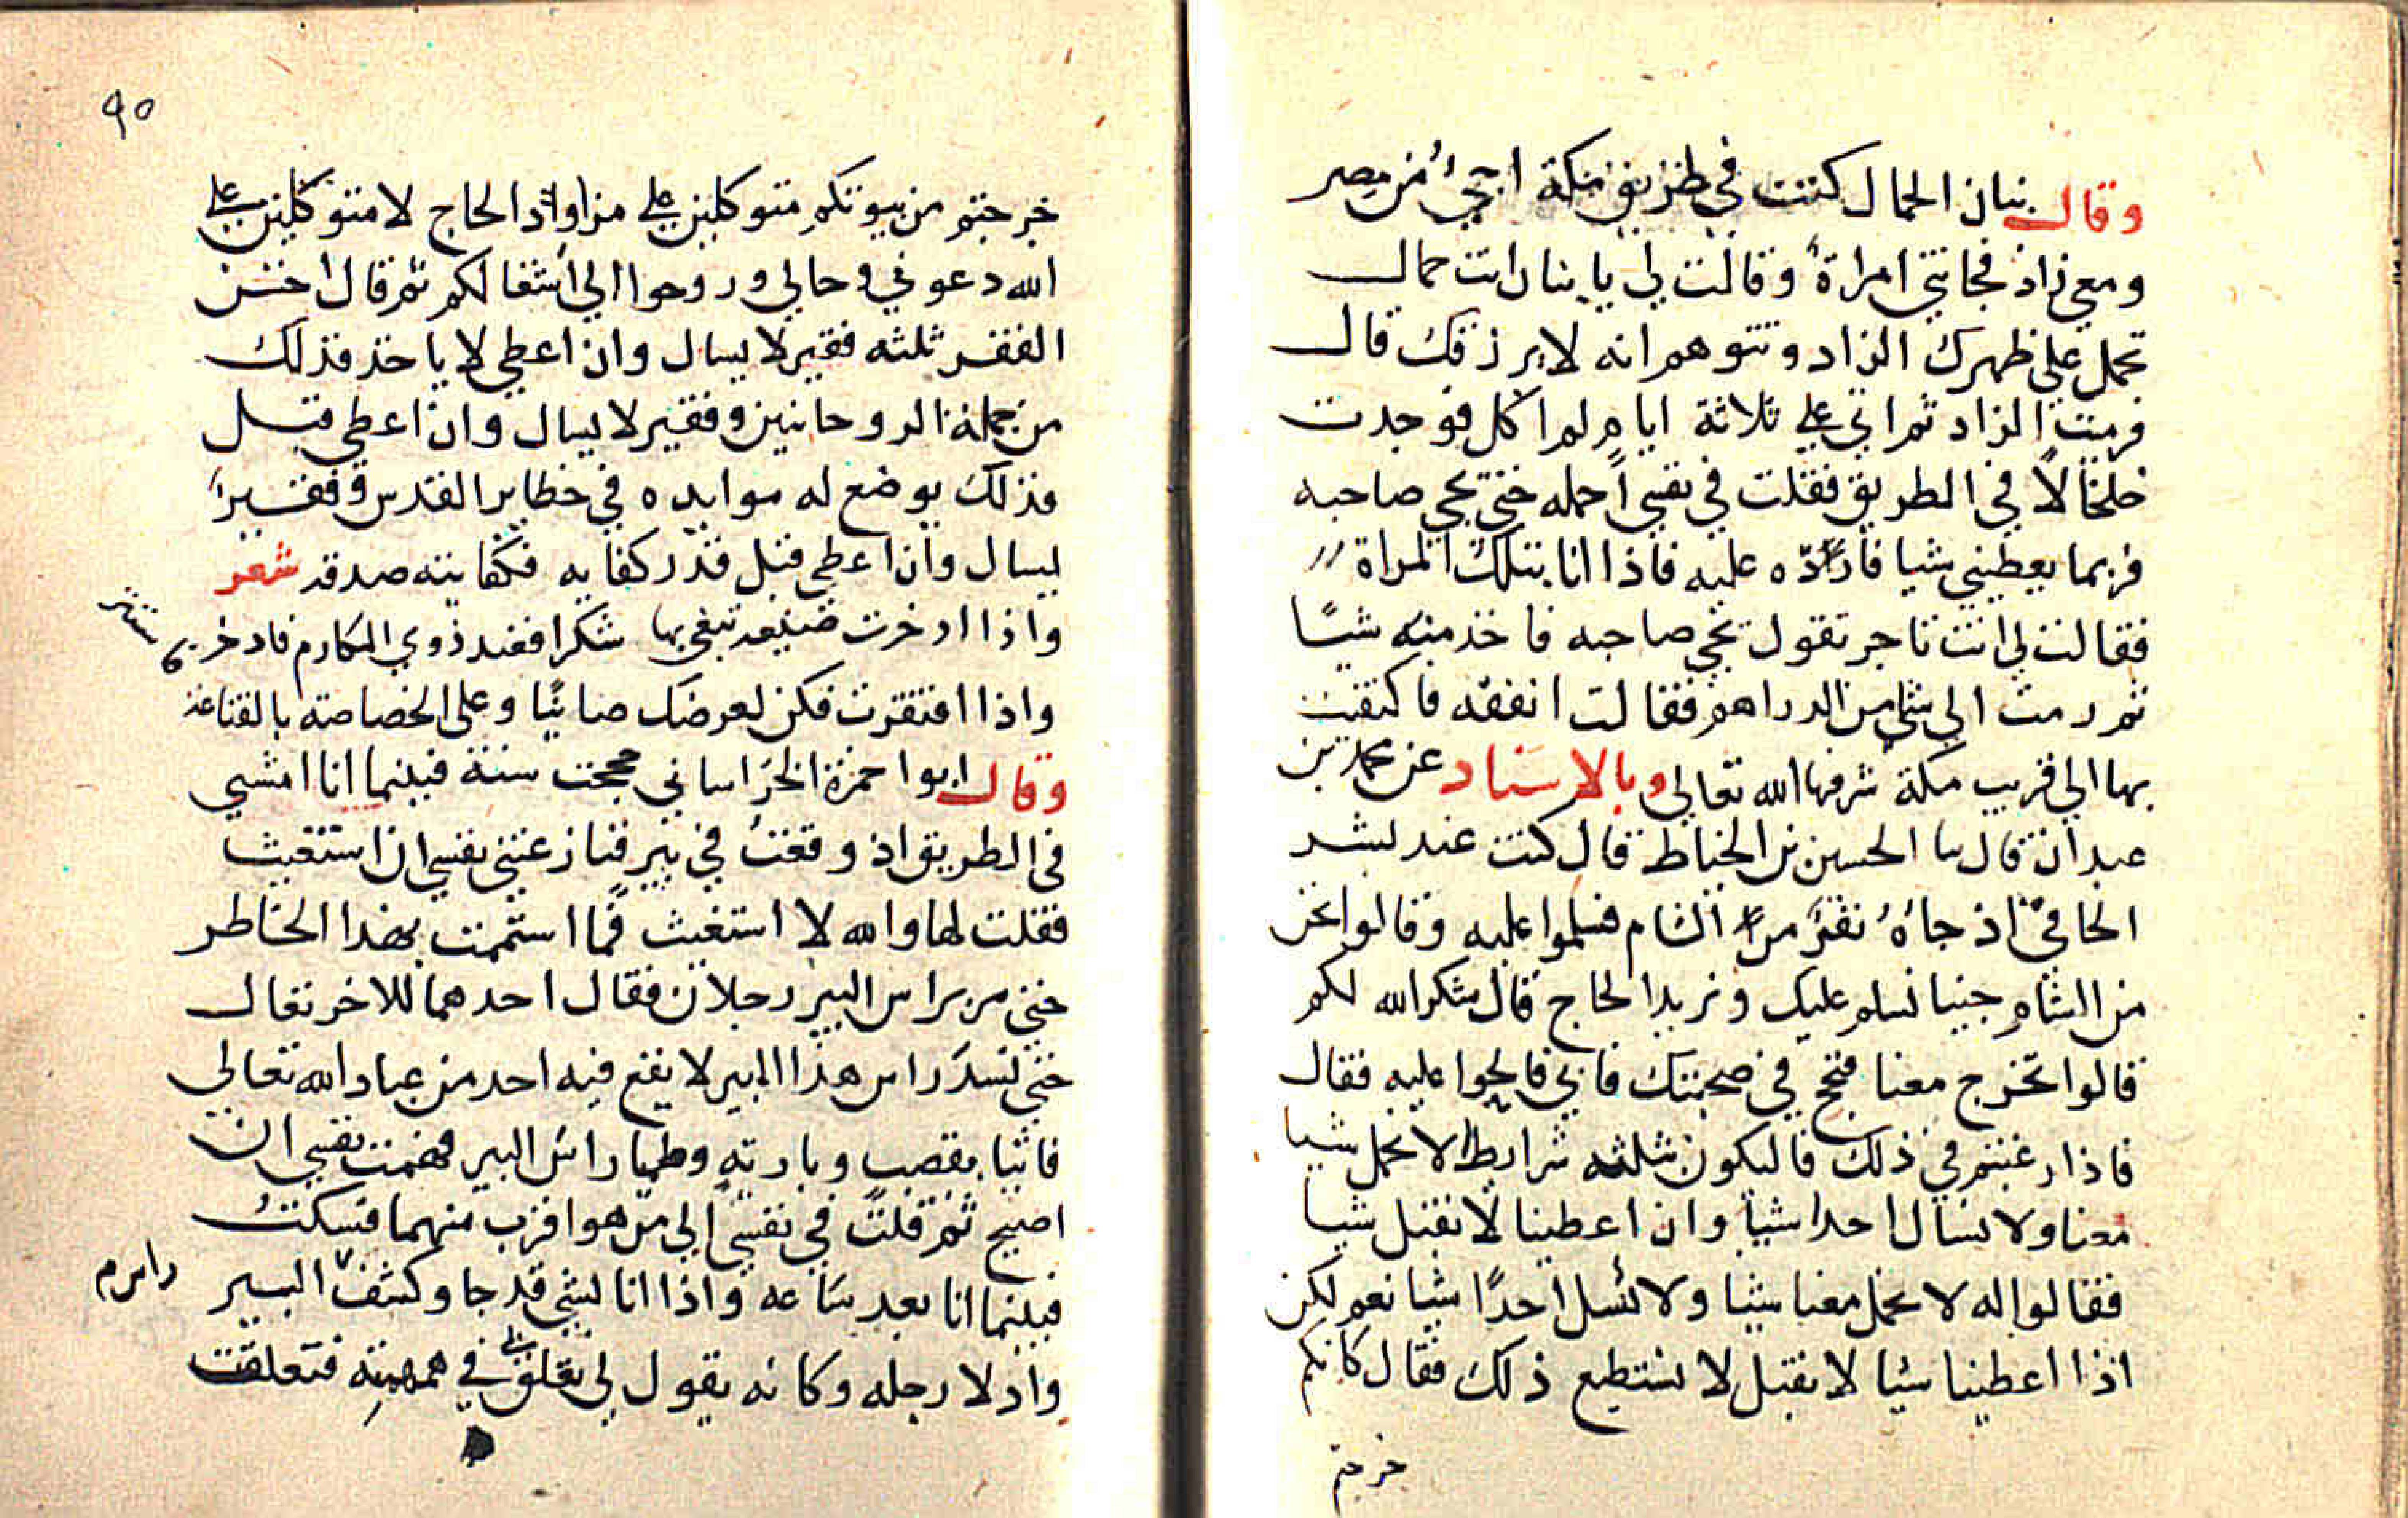 وقال بنان الحمال كنت في طريق مكة اجئ من مصر
ومعي زاد فجاتني امراة وقالت لي يا بنان انت حمال
تحمل على ظهرك الزاد وتتوهم انه لا يرزقك قال
فرميت الزاد ثم اتى علي ثلاثة ايام لم اكل فوجدت
خلخالا في الطريق فقلت في نفسي احمله حتى يجي صاحبه
فربما يعطيني شيا فارده عليه فاذا انا بتلك المراة
فقالت لي انت تاجر تقول يجي صاحبه فاخذ منه شيًا
ثم رمت الي شي من الدراهم فقالت انفقه فاكتفيت
بها الى قريب مكة شرفها الله تعالى وبالاسناد عن محمد بن
عبدان قال نا الحسين بن الخياط قال كنت عند بشر
الحافي اذ جاه نفر من الشام فسلموا عليه وقالوا نحن
من الشام جينا نسلم عليك ونريد الحاج قال شكر الله لكم
قالوا تخرج معنا فنحج في صحبتك فابى فالحوا عليه فقال
فاذا رغبتم في ذلك فاليكون بثلثه شرايط لا نحمل شيا
معنا ولا نسال احدا شيا وان اعطينا لا نقبل شيا
فقالوا له لا نحمل معنا شيا ولا نسل احدًا شيا نعم لكن
اذا اعطينا شيا لا نقبل لا نستطيع ذلك فقال كانكم
خرجتم
٩٥
خرجتم من بيوتكم متوكلين على مزاواد الحاج لا متوكلين على
الله دعوني وحالي وروحوا الى اشغالكم ثم قال احسن
الفقر ثلثه فقير لا يسال وان اعطي لا ياخذ فذلك
من جملة الروحانيين وفقير لا يسال وان اعطي قبل
فذلك يوضع له موايده في حظاير القدس وفقير
ليسال وان اعطي قبل قدر كفايه فكفايته صدقه شعر
واذا ادخرت صنيعه تبغي بها شكرا فعند ذوي المكارم فادخر
واذا افتقرت فكن لعرضك صاينًا وعلى الخصاصة بالقناعة
وقال ابوا حمزة الخراساني حججت سنة فبينما انا امشي
في الطريق اذ وقعت في بير فنازعتني نفسي ان استغيث
فقلت لها والله لا استغيث فما استتممت بهذا الخاطر
حتى مر براس البير رجلان فقال احدهما للاخر تعال
حتى نسد راس هذا البير لا يقع فيه احد من عباد الله تعالى
فاتيا بقصب وبارية وطما راس البير فهممت نفسي ان
اصيح ثم قلت في نفسي الى من هو اقرب منهما فسكنت
فبينما انا بعد ساعه واذا انا بشي قد جا وكشف البير
راس م
وادلا رجله وكانه يقول لي تعلق في همهمته فتعلقت